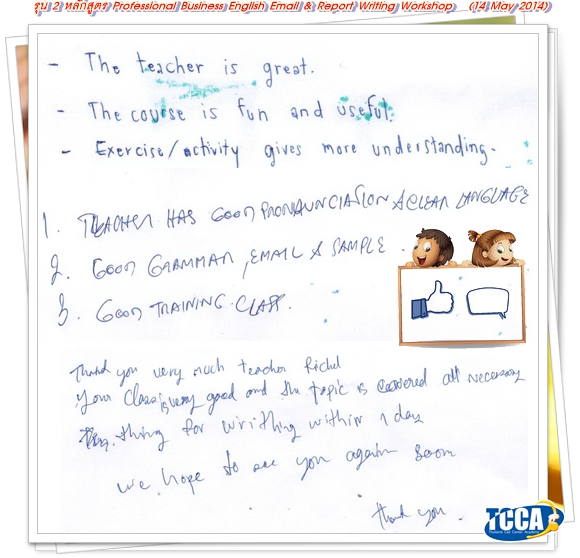 รุ่น 2 หลักสูตร Professional Business English Email & Report Writing Workshop (14 May 2014)
- The teacher is great.
- The course is fun and useful.
- Exercise/activity gives more understanding.
1. TEACHER HAS GOOD PRONAUNCIATION & CLEAR LANGUAGE
2. GOOD GRAMMAR, EMAIL & SAMPLE.
3. GOOD TRAINING CLASS.
Thank you very much teacher Richel
Your Class is very good and the topic is covered all necessary
thing for writhing within 1 day
we hope to see you again soon
Thank you.
TCCA
Thailand Call Center Academy